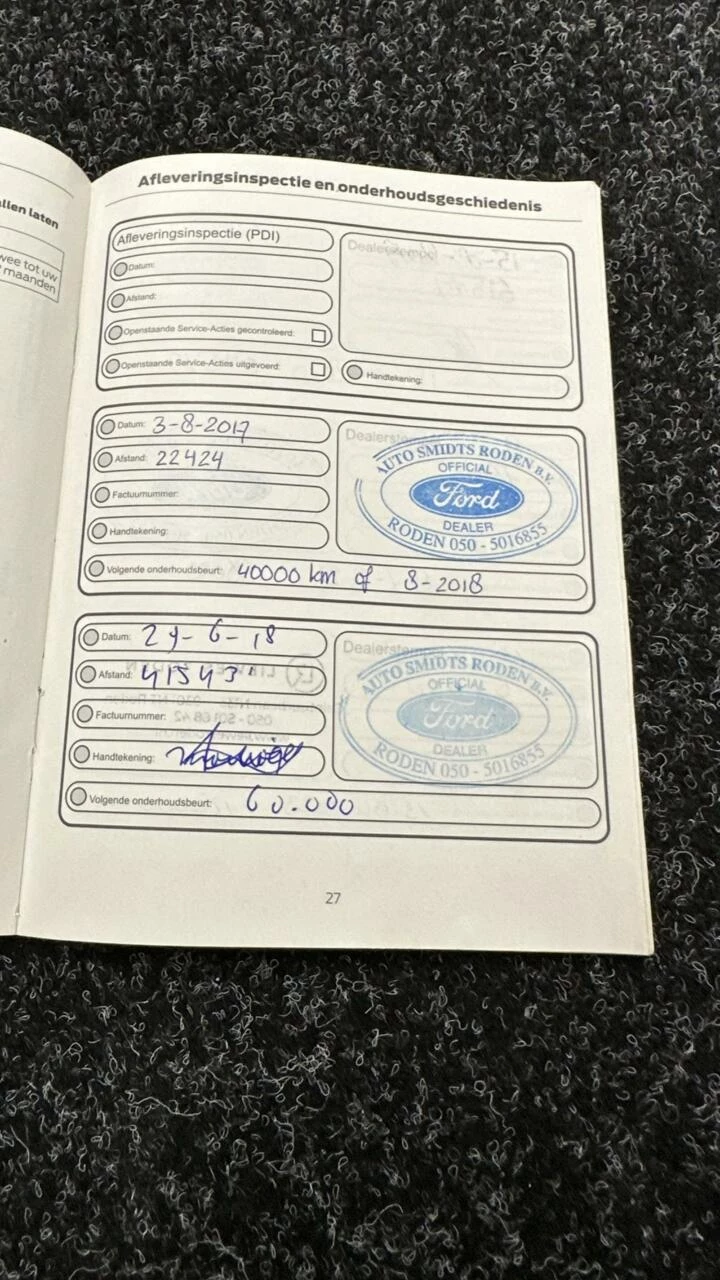 allen laten
wee tot uw
maanden
Afleveringsinspectie en onderhoudsgeschiedenis
Afleveringsinspectie (PDI)
Datum:
Afstand:
Openstaande Service-Acties gecontroleerd:
Openstaande Service-Acties uitgevoerd:
Handtekening:
Datum: 3-8-2017
Afstand: 22424
Factuurnummer:
Handtekening:
Volgende onderhoudsbeurt: 40000 km of 8-2018
AUTO SMIDTS RODEN B.V.
OFFICIAL
Ford
DEALER
RODEN 050 - 5016855
Datum: -6-18
Afstand:
Factuurnummer:
Handtekening:
Volgende onderhoudsbeurt: 60.000
AUTO SMIDTS RODEN B.V.
OFFICIAL
Ford
DEALER
RODEN 050 - 5016855
27